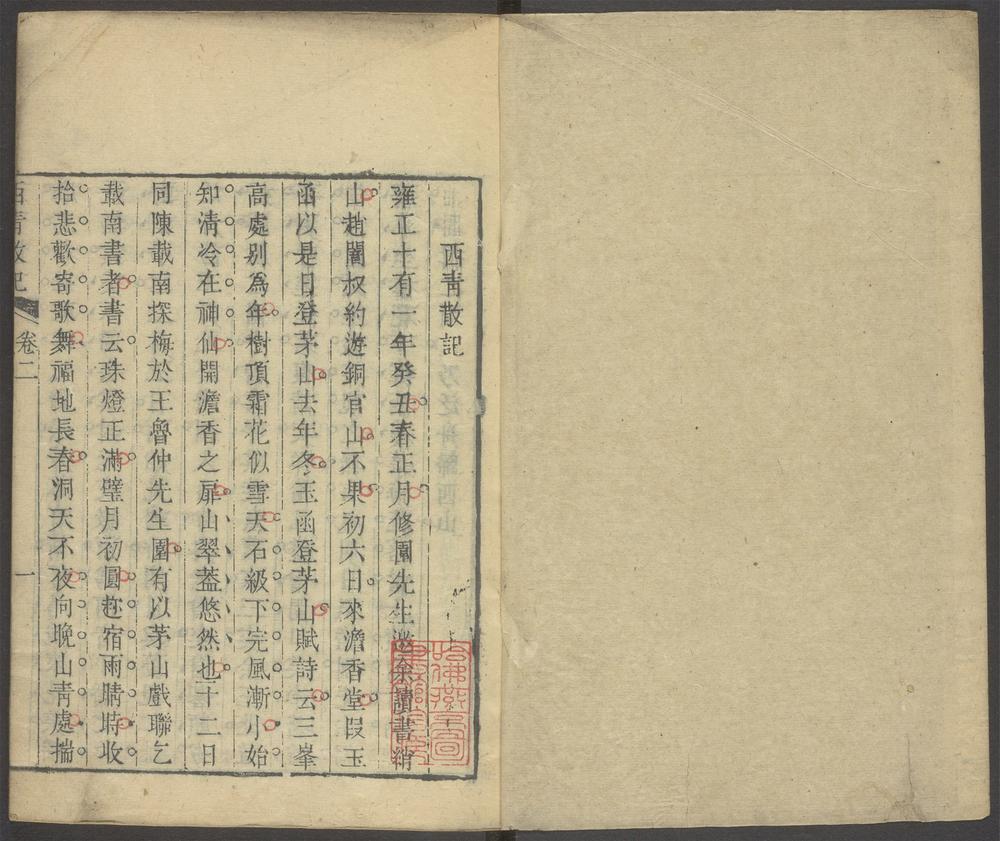 西青散記
雍正十有一年癸丑春正月修園先生邀余讀書綃
山趙闇叔約遊銅官山不果初六日來澹香堂段玉
函以是日登茅山去年冬玉函登茅山賦詩云三峯
高處别為年樹頂霜花似雪天石級下完風漸小始
知清冷在神仙開澹香之扉山翠葢悠然也十二日
同陳載南探梅於王魯仲先生園有以茅山戲聯乞
載南書者書云珠燈正滿璧月初圓趂宿雨晴時收
拾悲歡寄歌舞福地長春洞天不夜向晚山青處揣
西青散記
卷二
一
哈佛燕京圖